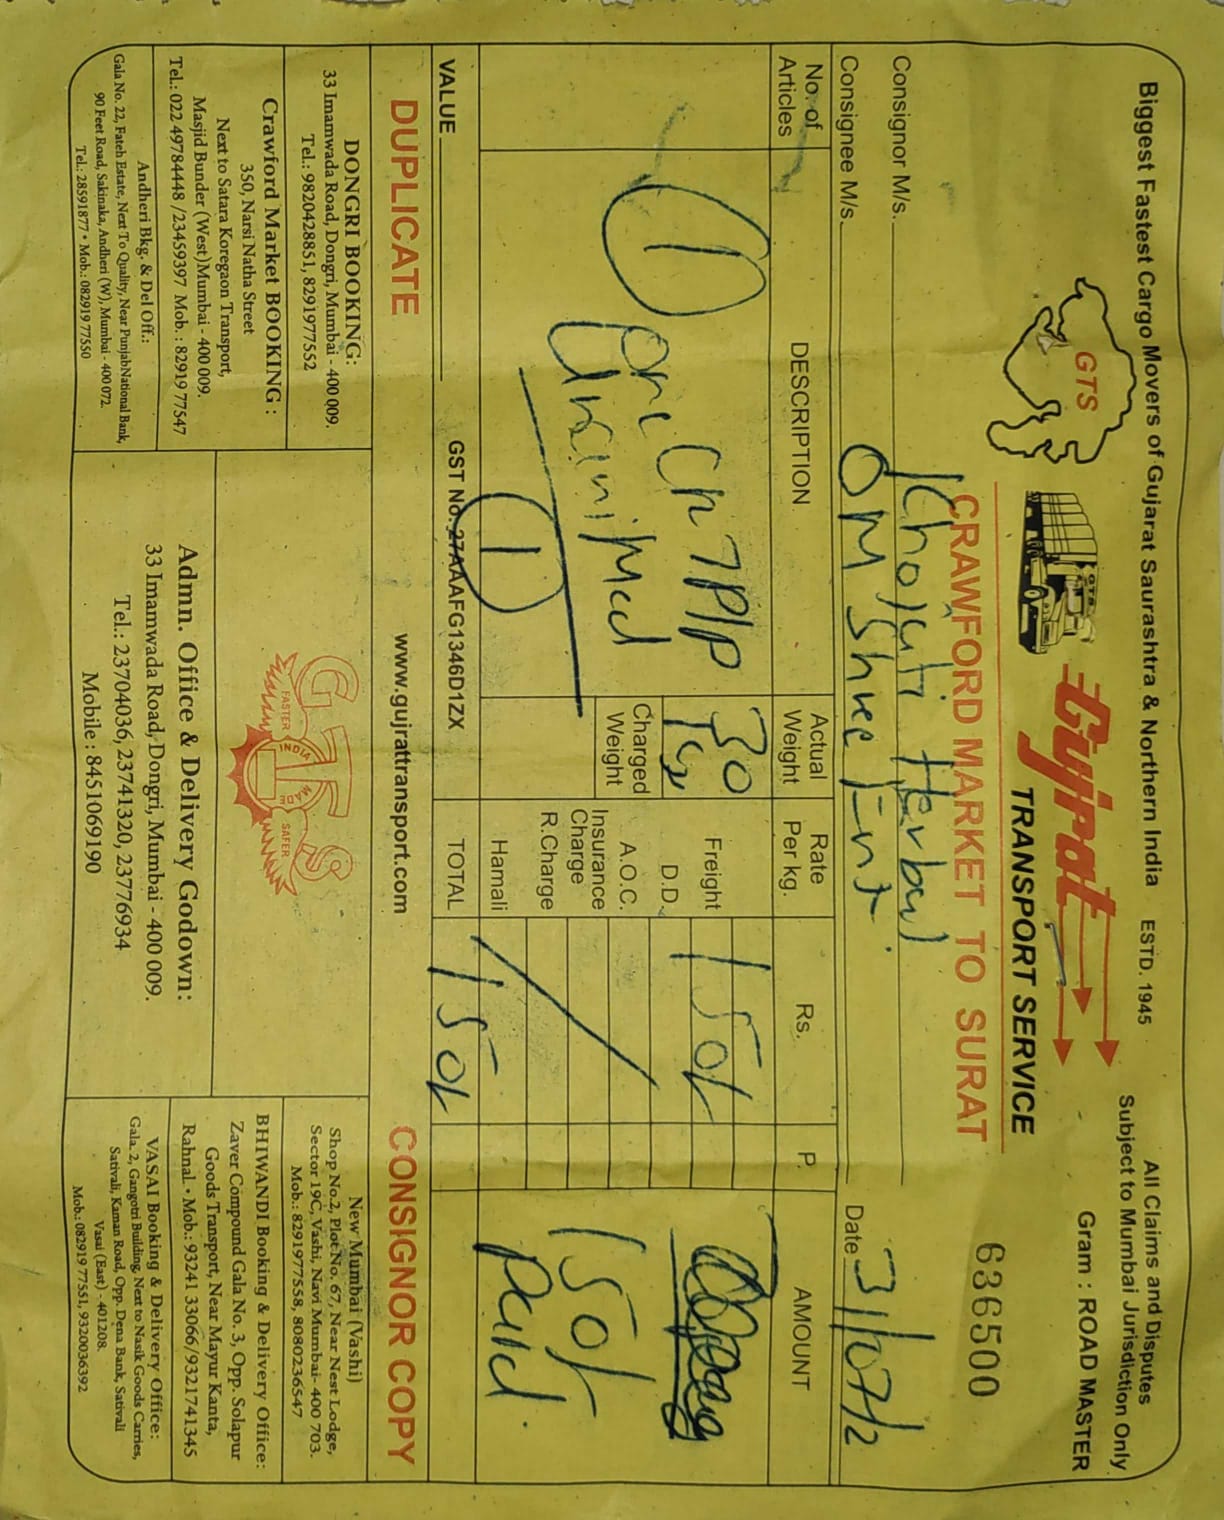 Biggest Fastest Cargo Movers of Gujarat Saurashtra & Northern India ESTD. 1945
All Claims and Disputes
Subject to Mumbai Jurisdiction Only
Gram : ROAD MASTER
GTS
GTS
Gujrat
TRANSPORT SERVICE
CRAWFORD MARKET TO SURAT
636500
Consignor M/s. Khojati Herbal
Consignee M/s. Om Shree Ent. Date 31/07/2
No. of Articles DESCRIPTION Actual Weight Rate Per kg. Rs. P. AMOUNT
1 One CN 7PIP 30 Freight 150/-
D.D.
Charged Weight
A.O.C.
Insurance Charge
R.Charge
Hamali
150/-
Paid.
1
VALUE GST No. 27AAAFG1346D1ZX TOTAL 150/-
DUPLICATE www.gujrattransport.com CONSIGNOR COPY
DONGRI BOOKING:
33 Imamwada Road, Dongri, Mumbai - 400 009.
Tel.: 9820428851, 8291977552
Crawford Market BOOKING :
350, Narsi Natha Street
Next to Satara Koregaon Transport,
Masjid Bunder (West)Mumbai - 400 009.
Tel.: 022 49784448 /23459397 Mob. : 82919 77547
Andheri Bkg. & Del Off.:
Gala No. 22, Fateh Estate, Next To Quality, Near PunjabNational Bank,
90 Feet Road, Sakinaka, Andheri (W), Mumbai - 400 072.
Tel.: 28591877 • Mob.: 08291977550
GTS
FASTER
INDIA
MADE
SAFER
Admn. Office & Delivery Godown:
33 Imamwada Road, Dongri, Mumbai - 400 009.
Tel.: 23704036, 23741320, 23776934
Mobile : 8451069190
New Mumbai (Vashi)
Shop No.2, Plot No. 67, Near Nest Lodge,
Sector 19C, Vashi, Navi Mumbai- 400 703.
Mob.: 8291977558, 8080236547
BHIWANDI Booking & Delivery Office:
Zaver Compound Gala No. 3, Opp. Solapur
Goods Transport, Near Mayur Kanta,
Rahnal. • Mob.: 93241 33066/9321741345
VASAI Booking & Delivery Office:
Gala. 2, Gangotri Building, Next to Nasik Goods Carries,
Sativali, Kaman Road, Opp. Dena Bank, Sativali
Vasai (East) - 401208.
Mob.: 08291977551, 9320036392